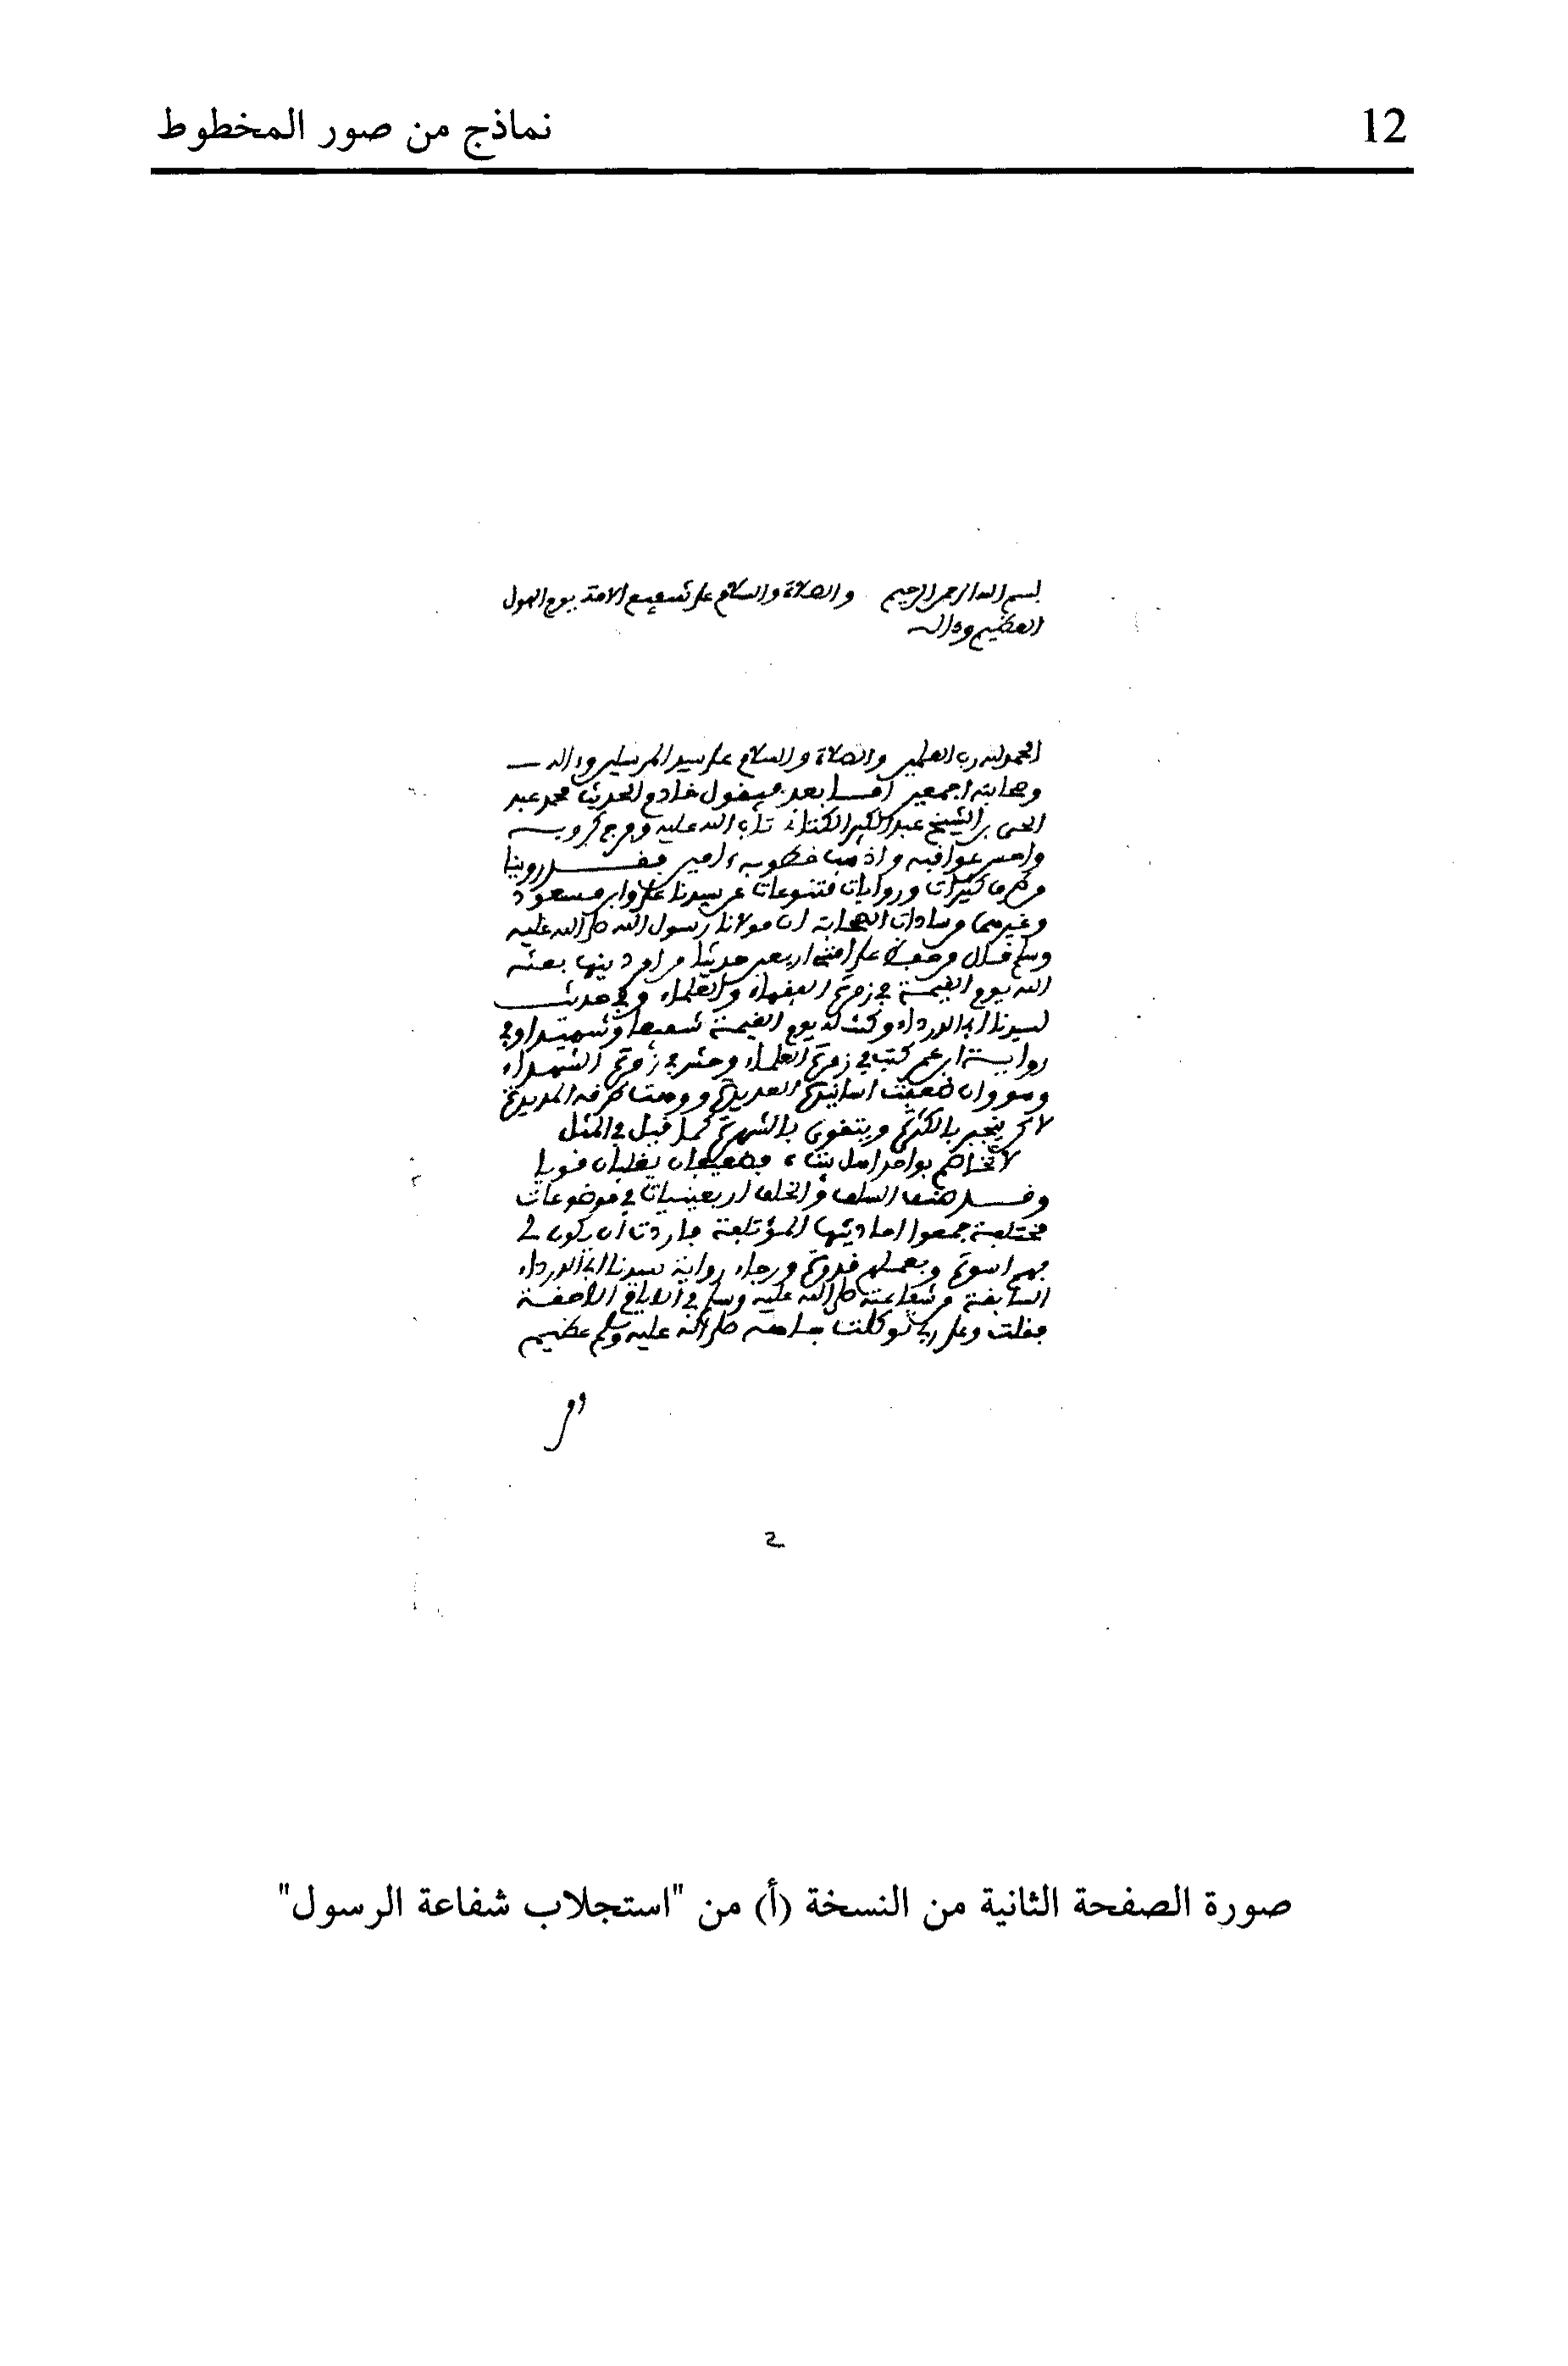 12
نماذج من صور المخطوط
بسم الله الرحمن الرحيم والصلاة والسلام على شفيع الامة يوم الهول
العظيم وءاله
الحمد لله رب العلمين والصلاة والسلام على سيد المرسلين وءاله
وصحابته اجمعين أما بعد فيقول خادم الحديث محمد عبد
الحي بن الشيخ عبد الكبير الكتاني تاب الله عليه وفرج كروبه
واحسن عواقبه واذهب خطوبه ءامين فقد روينا
من طرق كثيرات وروايات متنوعات عن سيدنا علي وابن مسعود
وغيرهما من سادات الصحابة ان مولانا رسول الله صلى الله عليه
وسلم قال من حفظ على امتي اربعين حديثا من امر دينها بعثه
الله يوم القيمة في زمرة الفقهاء والعلماء وفي حديث
لسيدنا ابي الدرداء وكنت له يوم القيمة شفيعا وشهيدا وفي
رواية ابن عمر كتب في زمرة العلماء وحشر في زمرة الشهداء
وهو وان ضعفت اسانيده العديدة ووهت طرقه المديدة
لاكن ينجبر بالكثرة ويتقوى بالشهرة كما قيل في المثل
لا تخاصم بواحد اهل بيت، فضعيفان يغلبان قويا
وقد صنف السلف والخلف اربعينيات في موضوعات
مختلفة جمعوا احاديثها المؤتلفة فاردت أن يكون لي
بهم اسوة وبعملهم قدوة ورجاء رواية سيدنا ابي الدرداء
السابقة من شفاعته صلى الله عليه وسلم في
فقلت وعلى ربي توكلت صلى الله عليه وسلم عظيم
2
صورة الصفحة الثانية من النسخة (أ) من "استجلاب شفاعة الرسول"